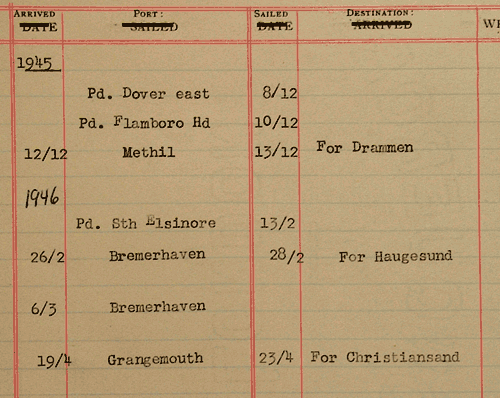 ARRIVED PORT: SAILED DESTINATION:
DATE SAILED DATE ARRIVED
1945
Pd. Dover east 8/12
Pd. Flamboro Hd 10/12
12/12 Methil 13/12 For Drammen
1946
Pd. Sth Elsinore 13/2
26/2 Bremerhaven 28/2 For Haugesund
6/3 Bremerhaven
19/4 Grangemouth 23/4 For Christiansand